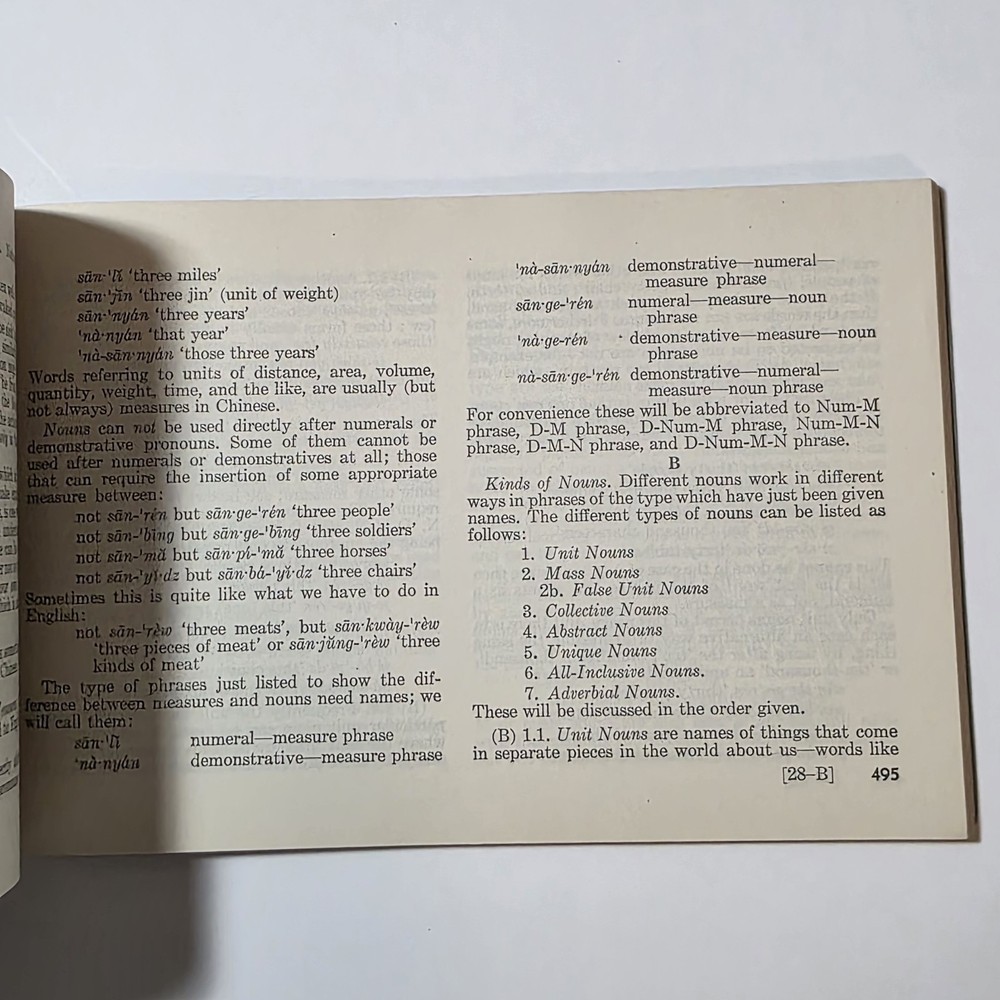 sān·'lǐ 'three miles'
sān·'jīn 'three jin' (unit of weight)
sān·'nyán 'three years'
'nà·nyán 'that year'
'nà-sān·nyán 'those three years'
Words referring to units of distance, area, volume,
quantity, weight, time, and the like, are usually (but
not always) measures in Chinese.
Nouns can not be used directly after numerals or
demonstrative pronouns. Some of them cannot be
used after numerals or demonstratives at all; those
that can require the insertion of some appropriate
measure between:
not sān-'rén but sān·ge-'rén 'three people'
not sān-'bīng but sān·ge-'bīng 'three soldiers'
not sān-'mǎ but sān·pí-'mǎ 'three horses'
not sān-'yǐ·dz but sān·bá-'yǐ·dz 'three chairs'
Sometimes this is quite like what we have to do in
English:
not sān-'rèw 'three meats', but sān·kwày-'rèw
'three pieces of meat' or sān·jǔng-'rèw 'three
kinds of meat'
The type of phrases just listed to show the dif-
ference between measures and nouns need names; we
will call them:
sān·'lǐ numeral—measure phrase
'nà·nyán demonstrative—measure phrase
'nà-sān·nyán demonstrative—numeral—
measure phrase
sān·ge-'rén numeral—measure—noun
phrase
'nà·ge-rén demonstrative—measure—noun
phrase
nà-sān·ge-'rén demonstrative—numeral—
measure—noun phrase
For convenience these will be abbreviated to Num-M
phrase, D-M phrase, D-Num-M phrase, Num-M-N
phrase, D-M-N phrase, and D-Num-M-N phrase.
B
Kinds of Nouns. Different nouns work in different
ways in phrases of the type which have just been given
names. The different types of nouns can be listed as
follows:
1. Unit Nouns
2. Mass Nouns
2b. False Unit Nouns
3. Collective Nouns
4. Abstract Nouns
5. Unique Nouns
6. All-Inclusive Nouns.
7. Adverbial Nouns.
These will be discussed in the order given.
(B) 1.1. Unit Nouns are names of things that come
in separate pieces in the world about us—words like
[28-B] 495